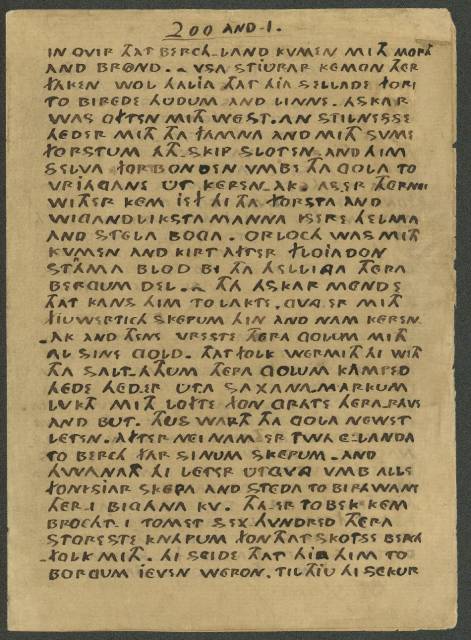 200 AND·I·
IN OVIR THAT BERCH-LAND KVMEN MITH MORTH
AND BROND. - VSA STJURAR KEMON THER
FAKEN WOL HALIA THAT HIA SELLADE FORI
TO BIREDE HUDUM AND LINNE. ASKAR
WAS OFTEN MITH WEST. AN STILNESSE
HEDER MITH THA FAMNA AND MITH SVME
FORSTUM ATHSKIP SLOTEN AND HIM
SELVA FORBONDEN VMBE THA GOLA TO
VRJAGANE UT KEREN-AK. AS.ER THERNEI
WITHER KEM JEF HI THA FORSTA AND
WIGANDLIKSTA MANNA YSERE HELMA
AND STELA BOGA. ORLOCH WAS MITH
KVMEN AND KIRT AFTER FLOJADON
STRAMA BLOD BI THA HELLINGA THERA
BERGUM DEL. - THA ASKAR MENDE
THAT KANS HIM TOLAKTE. GVNG.ER MITH
FJUWERTICH SKEPUM HIN AND NAM KEREN-
-AK AND THENE VRESTE THERA GOLUM MITH
AL SINE GOLD. THAT FOLK WERMITH HI WITH
THA SALT-ATHUM THERA GOLUM KAMPED
HEDE HEDER UTA SAXANA-MARKUM
LVKT MITH LOFTE FON GRATE HERA-RAVE
AND BUT. THUS WARTH THA GOLA NEWET
LETEN. AFTER NEI NAM.ER TWA E-LANDA
TO BERCH FAR SINUM SKEPUM. AND
HWANATH HI LETER UTGVNG VMB ALLE
FONISJAR SKEPA AND STEDA TO BIRAWANE
THER I BIGANA KV. THA ER TOBEK KEM
BROCHT I TOMET SEX HVNDRED THERA
STORESTE KNAPUM FON THAT SKOTSE BERCH-
-FOLK MITH. HI SEIDE THAT HIA HIM TO
BORGUM JEVEN WERON. TIL THJU HI SEKUR